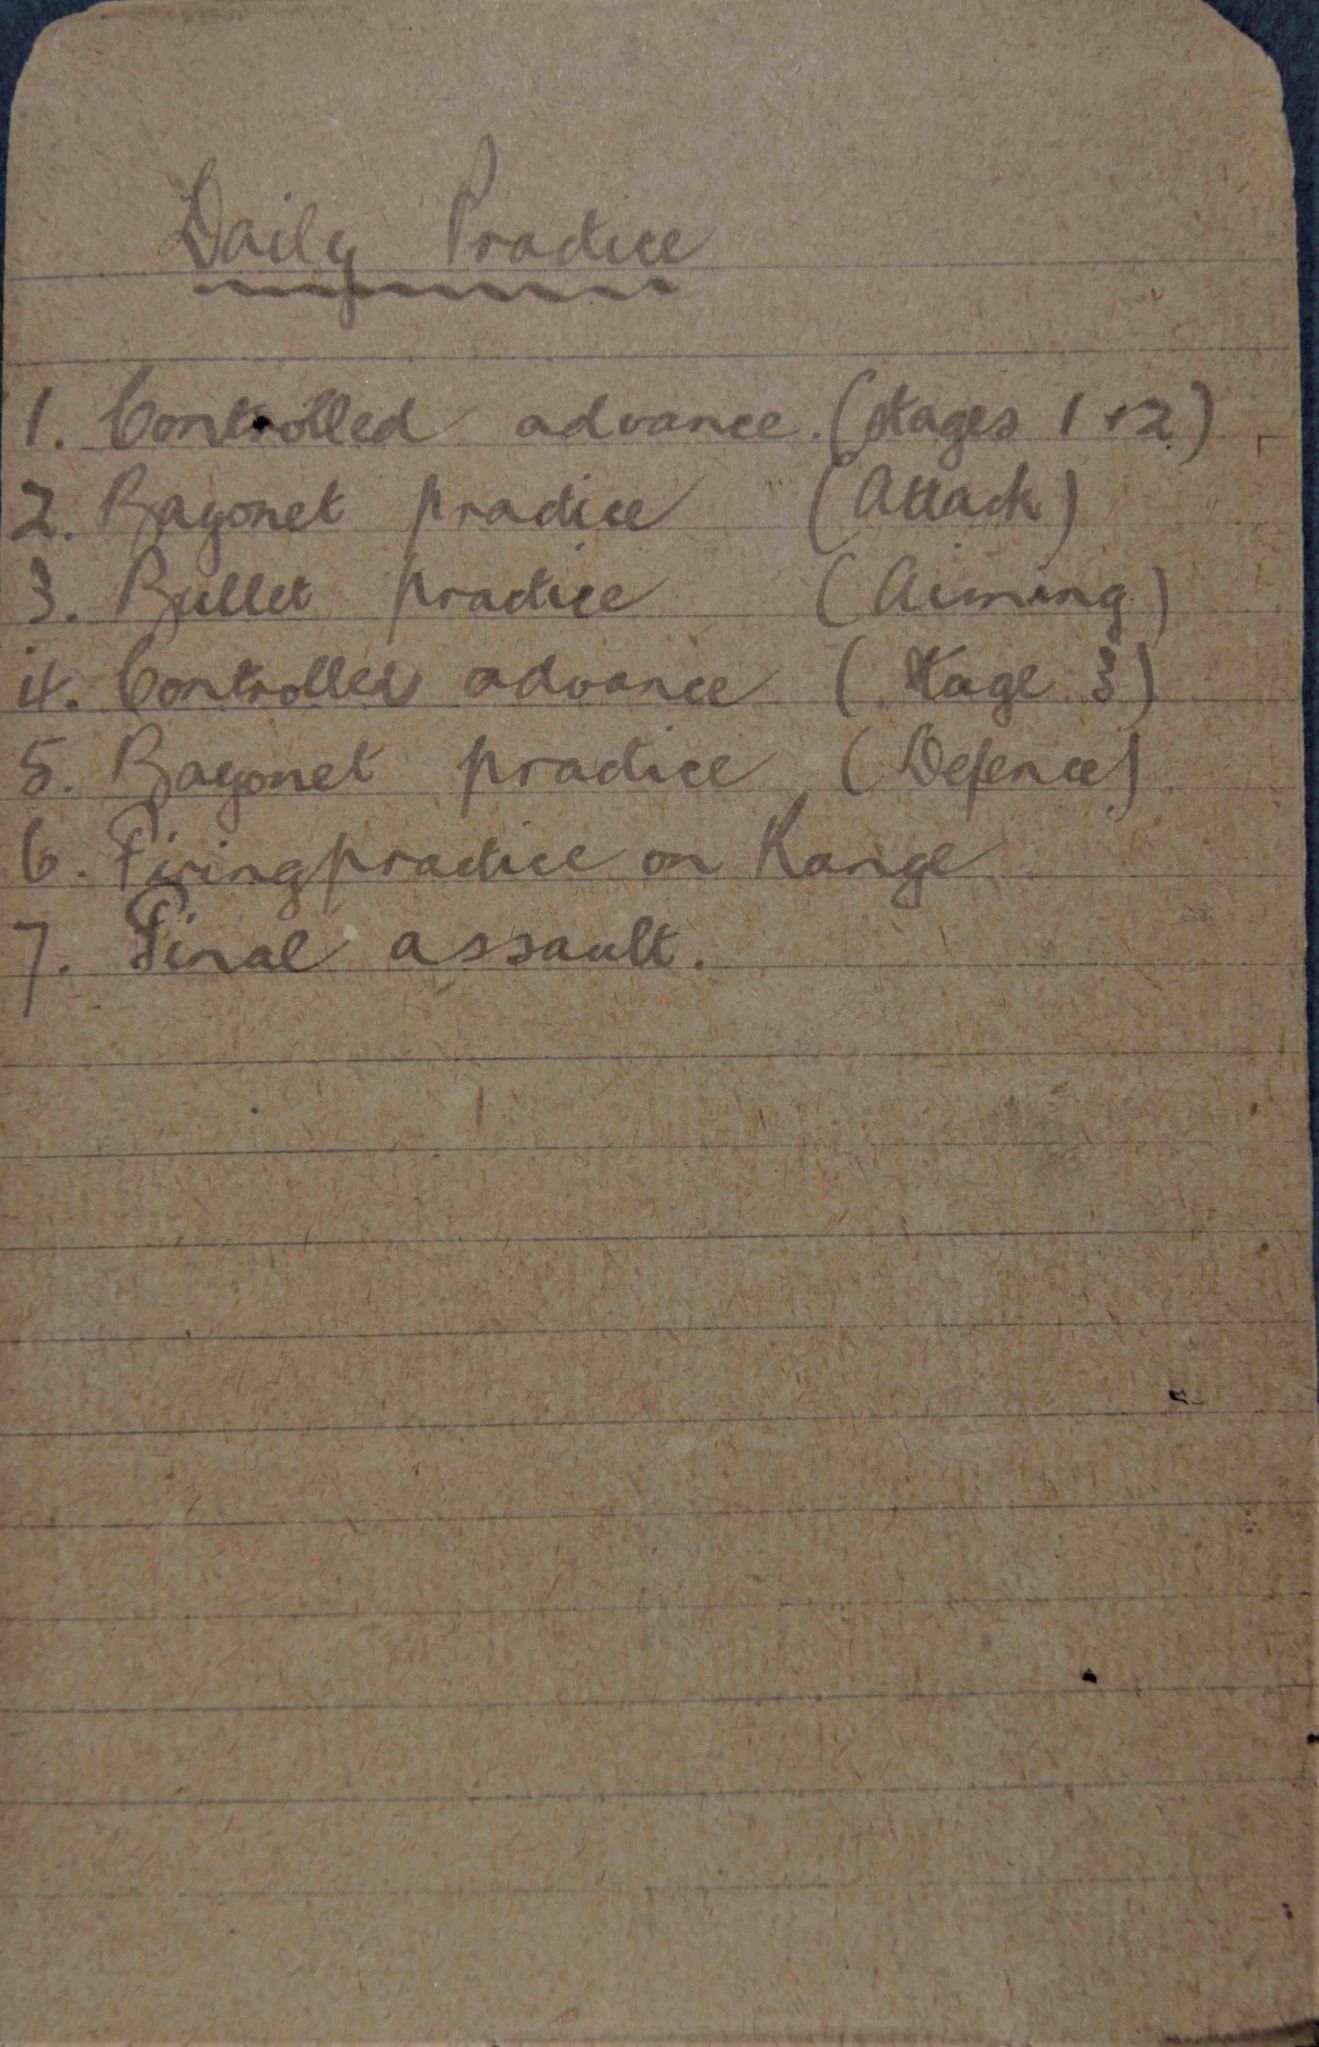 Daily Practice
1. Controlled advance. (Stages 1 + 2)
2. Bayonet practice (Attack)
3. Bullet practice (Aiming)
4. Controlled advance (Stage 3)
5. Bayonet practice (Defence)
6. Firing practice on Range
7. Final assault.